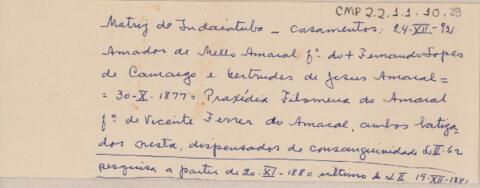 CMP 2.2.1.1.10.29
Matriz de Indaiatuba - Casamentos: 24-XII-92
Amador de Mello Amaral fº. do + Fernando Lopes
de Camargo e Gertrudes de Jesus Amaral =
= 30-X-1877 = Praxédia Filomena do Amaral
fª de Vicente Ferrer do Amaral, ambos batiza-
dos nesta, dispensados de consanguinidade L II-62
pesquisa a partir de 20-XI-1880 ultimo de L II 19-XII-1881